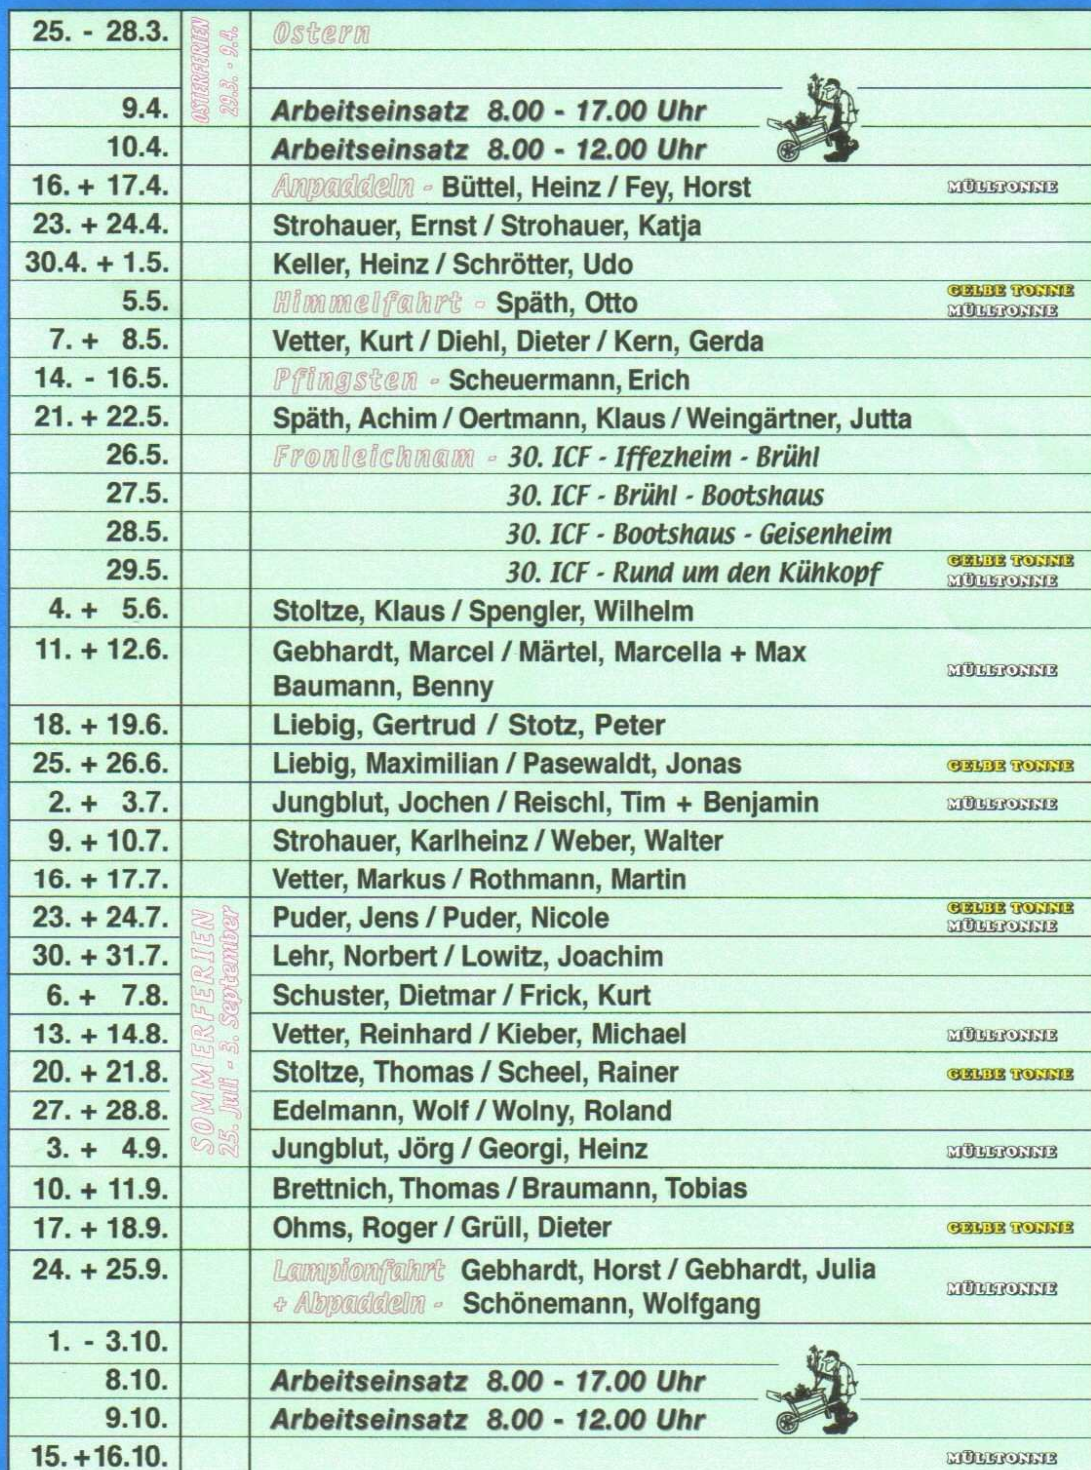 25. - 28.3. Ostern
OSTERFERIEN
29.3. - 9.4.
9.4. Arbeitseinsatz 8.00 - 17.00 Uhr
10.4. Arbeitseinsatz 8.00 - 12.00 Uhr
16. + 17.4. Anpaddeln - Büttel, Heinz / Fey, Horst MÜLLTONNE
23. + 24.4. Strohauer, Ernst / Strohauer, Katja
30.4. + 1.5. Keller, Heinz / Schrötter, Udo
5.5. Himmelfahrt - Späth, Otto GELBE TONNE
MÜLLTONNE
7. + 8.5. Vetter, Kurt / Diehl, Dieter / Kern, Gerda
14. - 16.5. Pfingsten - Scheuermann, Erich
21. + 22.5. Späth, Achim / Oertmann, Klaus / Weingärtner, Jutta
26.5. Fronleichnam - 30. ICF - Iffezheim - Brühl
27.5. 30. ICF - Brühl - Bootshaus
28.5. 30. ICF - Bootshaus - Geisenheim
29.5. 30. ICF - Rund um den Kühkopf GELBE TONNE
MÜLLTONNE
4. + 5.6. Stoltze, Klaus / Spengler, Wilhelm
11. + 12.6. Gebhardt, Marcel / Märtel, Marcella + Max
Baumann, Benny MÜLLTONNE
18. + 19.6. Liebig, Gertrud / Stotz, Peter
25. + 26.6. Liebig, Maximilian / Pasewaldt, Jonas GELBE TONNE
2. + 3.7. Jungblut, Jochen / Reischl, Tim + Benjamin MÜLLTONNE
9. + 10.7. Strohauer, Karlheinz / Weber, Walter
16. + 17.7. Vetter, Markus / Rothmann, Martin
SOMMERFERIEN
25. Juli - 3. September
23. + 24.7. Puder, Jens / Puder, Nicole GELBE TONNE
MÜLLTONNE
30. + 31.7. Lehr, Norbert / Lowitz, Joachim
6. + 7.8. Schuster, Dietmar / Frick, Kurt
13. + 14.8. Vetter, Reinhard / Kieber, Michael MÜLLTONNE
20. + 21.8. Stoltze, Thomas / Scheel, Rainer GELBE TONNE
27. + 28.8. Edelmann, Wolf / Wolny, Roland
3. + 4.9. Jungblut, Jörg / Georgi, Heinz MÜLLTONNE
10. + 11.9. Brettnich, Thomas / Braumann, Tobias
17. + 18.9. Ohms, Roger / Grüll, Dieter GELBE TONNE
24. + 25.9. Lampionfahrt Gebhardt, Horst / Gebhardt, Julia
+ Abpaddeln - Schönemann, Wolfgang MÜLLTONNE
1. - 3.10.
8.10. Arbeitseinsatz 8.00 - 17.00 Uhr
9.10. Arbeitseinsatz 8.00 - 12.00 Uhr
15. + 16.10. MÜLLTONNE